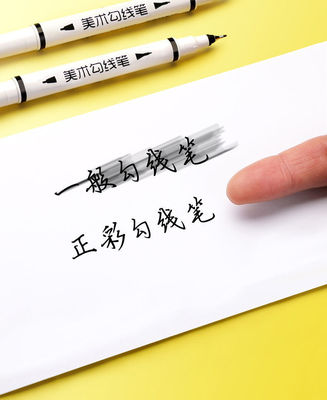 美术勾线笔
美术勾线笔
一般勾线笔
正彩勾线笔